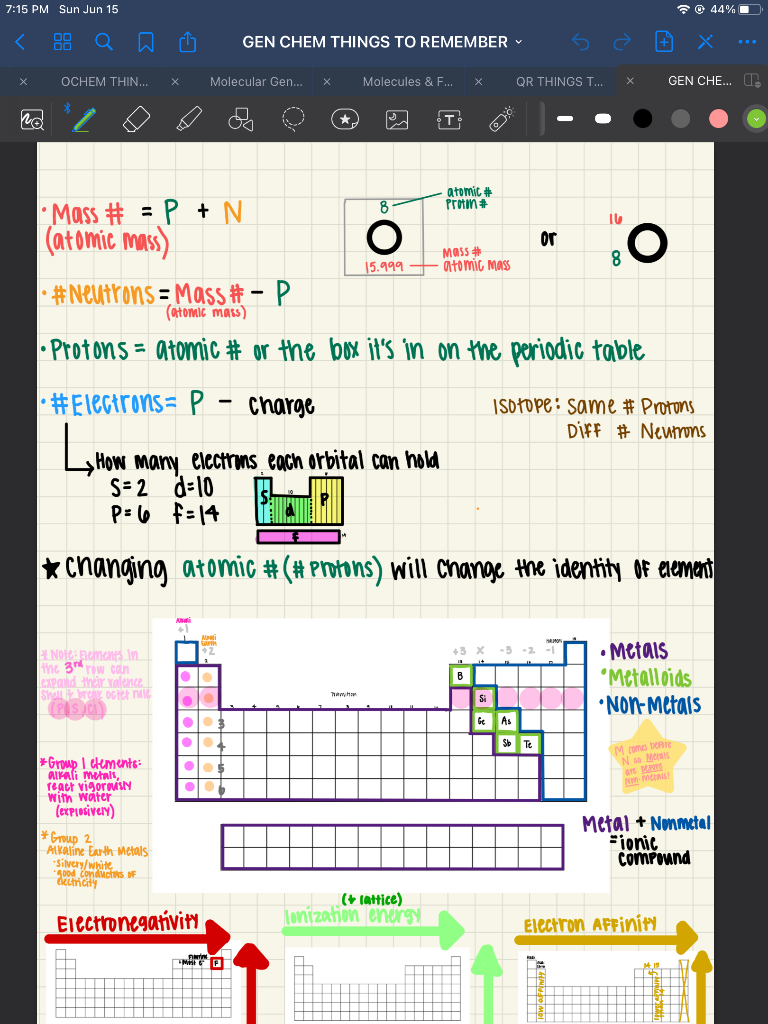 7:15 PM Sun Jun 15
44%
GEN CHEM THINGS TO REMEMBER
OCHEM THIN...
Molecular Gen...
Molecules & F...
QR THINGS T...
GEN CHE...
• Mass # = P + N
(atomic mass)
8
atomic #
proton #
15.999
Mass #
atomic mass
or
16
8
• #Neutrons = Mass # - P
(atomic mass)
• Protons = atomic # or the box it's in on the periodic table
• #Electrons = P - charge
Isotope: Same # Protons
Diff # Neutrons
How many electrons each orbital can hold
S=2 d=10
P=6 f=14
S
d
P
f
★ changing atomic # (# Protons) will change the identity of element
* Note: Elements in
the 3rd row can
expand their valence
shell & break octet rule
(P, S, Cl)
Alkali
+1
Alkali
Earth
+2
+3 X -3 -2 -1
Halogen
Transition
B
Si
Ge As
Sb Te
3
4
5
6
• Metals
• Metalloids
• Non-Metals
M comes before
N so Metals
are before
Non-Metals!
* Group 1 elements:
alkali metals,
react vigorously
with water
(explosively)
* Group 2
Alkaline Earth Metals
• Silvery/white
• good conductors of
electricity
Metal + Nonmetal
= ionic
compound
Electronegativity
(& lattice)
Ionization energy
Electron Affinity
F
low affinity